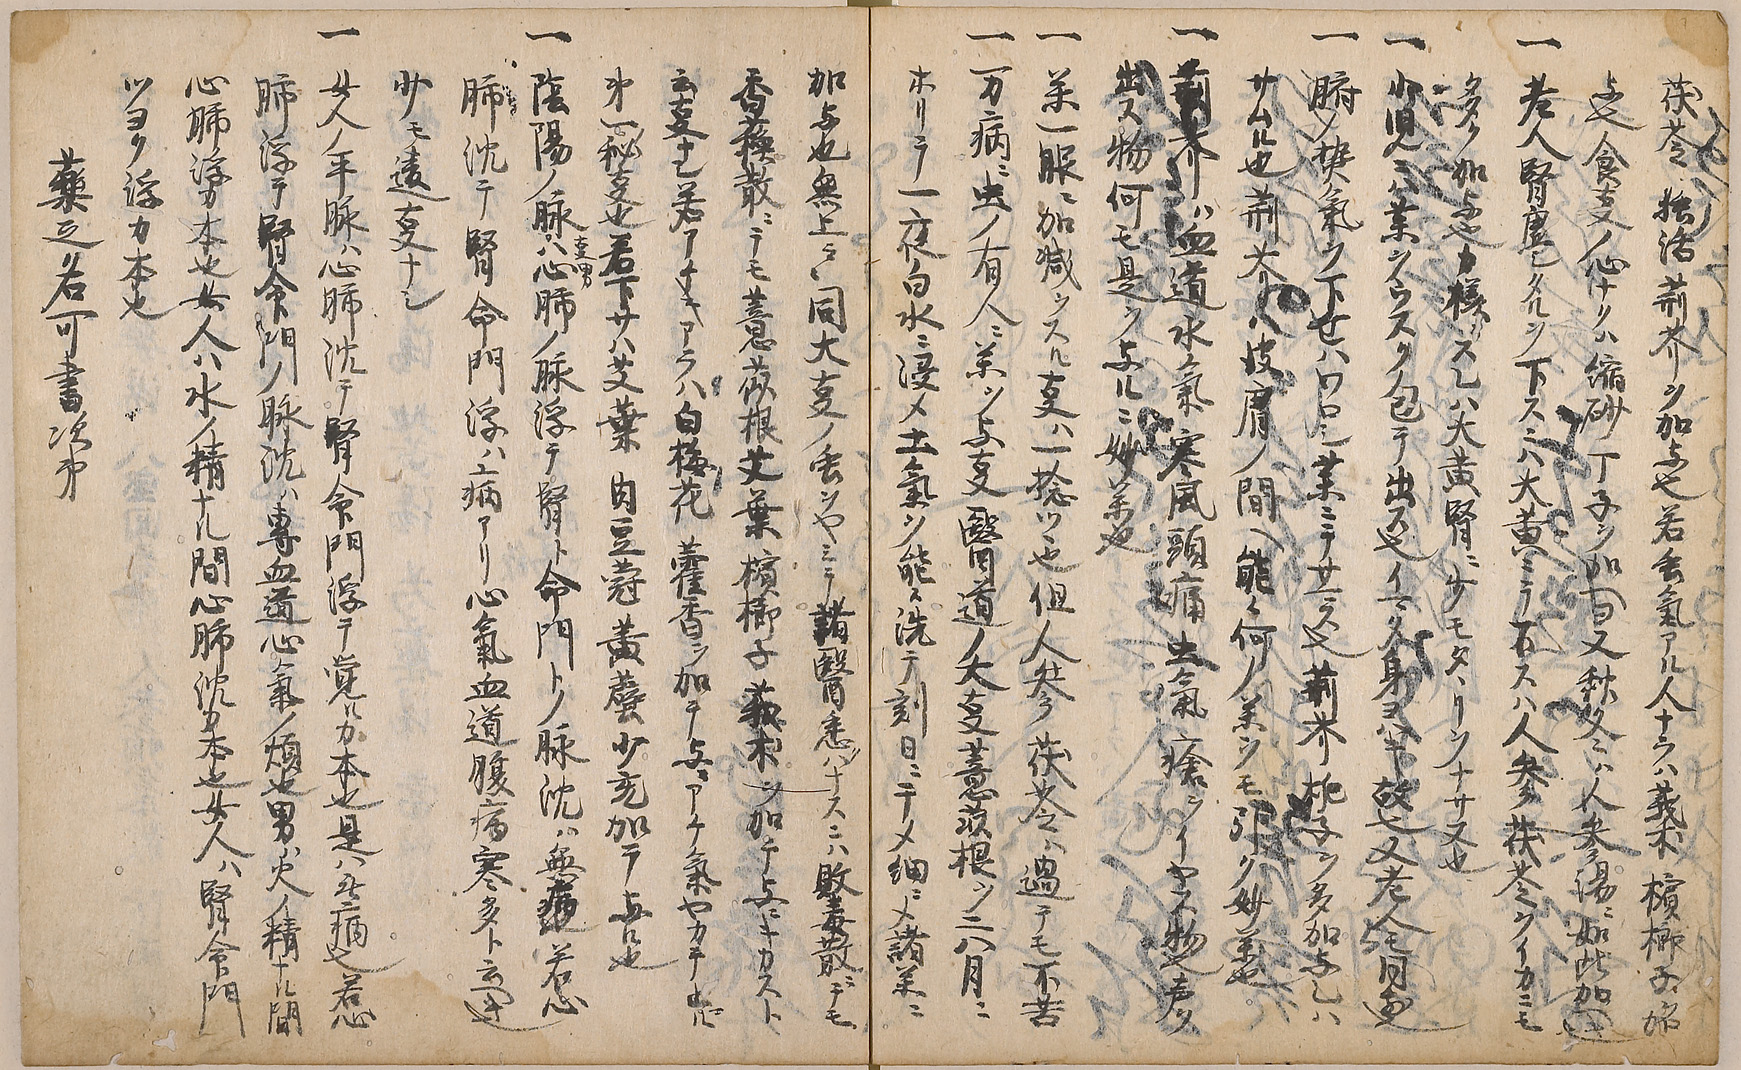 茯苓独活荊芥ヲ加与也若虫氣アル人ナラハ莪朮檳榔子加
与也食事ノ心ナクハ縮砂丁子ヲ加又秋冬ニハ人参湯ニ如此加
一 老人腎虚シタルヲ下スニハ大黄ニテ下スハ人参茯苓ヲイカニモ
多ク加与也カ様ニスレハ大黄腎ニ少モタヽリヲナサヌ也
一 小児ニハ薬ヲウスク包テ出ス也イマタ身ヨハキ故也又老人モ同也
一 腑ノ熱氣ヲ下セハワロシ薬ニテサマス也荊芥梔子ヲ多加与レハ
サムル也荊芥ハ皮膚ノ間ヘ能ク何ノ薬ヲモ引ク妙薬也
一 荊芥ハ血道水氣寒風頭痛虫氣瘡ヲイヤス物也声ヲ
出ス物何モ是ヲ与ルニ妙薬也
一 薬一服ニ加減ヲスル事ハ一捻ツヽ也但人参茯苓ハ過テモ不苦
一 一万病ニ虫ノ有人ニ薬ヲ与事醫道ノ大事薏苡根ヲ二八月ニ
ホリテ一夜白水ニ浸メ土氣ヲ能々洗テ刻日ニホメ細ニメ諸薬ニ
加与也無上々同大事ノ虫ヲヤミテ諸醫悉ハナスニハ敗毒散ニテモ
香蘓散ニテモ薏苡根艾葉檳榔子莪朮ヲ加テ与ニキカスト
云事ナシ若アチキアラハ白梅花藿香ヲ加テ与ニアチ氣ヤカテ止ル
第一秘事也若下サハ艾葉肉豆蔲黄蘗少充加テ与ル也
一 陰陽ノ脉ハ心肺ノ脉浮テ腎ト命門トノ脉沈ハ無病若心
肺沈テ腎命門浮ハ病アリ心氣血道腹病寒多ト云
少モ違事ナシ
一 女人ノ平脉ハ心肺沈テ腎命門浮テ覚ルカ本也是ハ無病也若心
肺浮テ腎命門ノ脉沈ハ専血道心氣ノ煩也男ハ火ノ精ナル間
心肺浮カ本也女人ハ水ノ精ナル間心肺沈カ本也女人ハ腎命門
ツヨク浮カ本也
藥之名可書次第